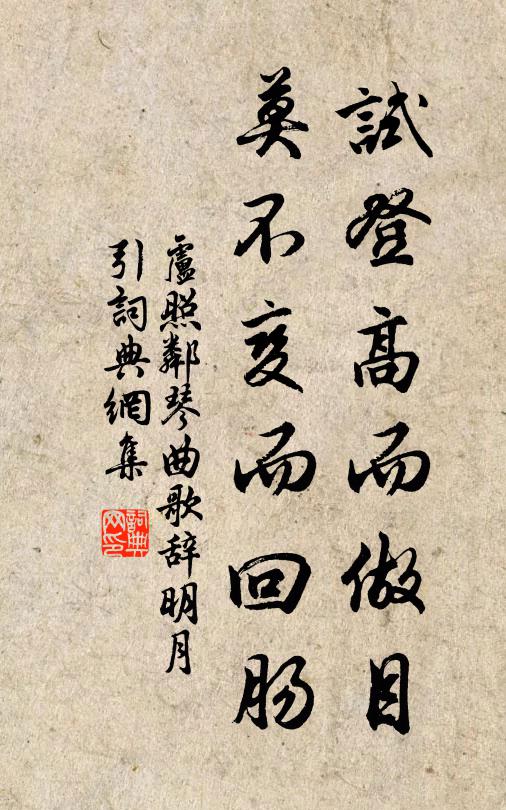 試登高而做目
莫不变而回肠
盧照鄰琴曲歌辞明月
引詞典網集
詞典网印